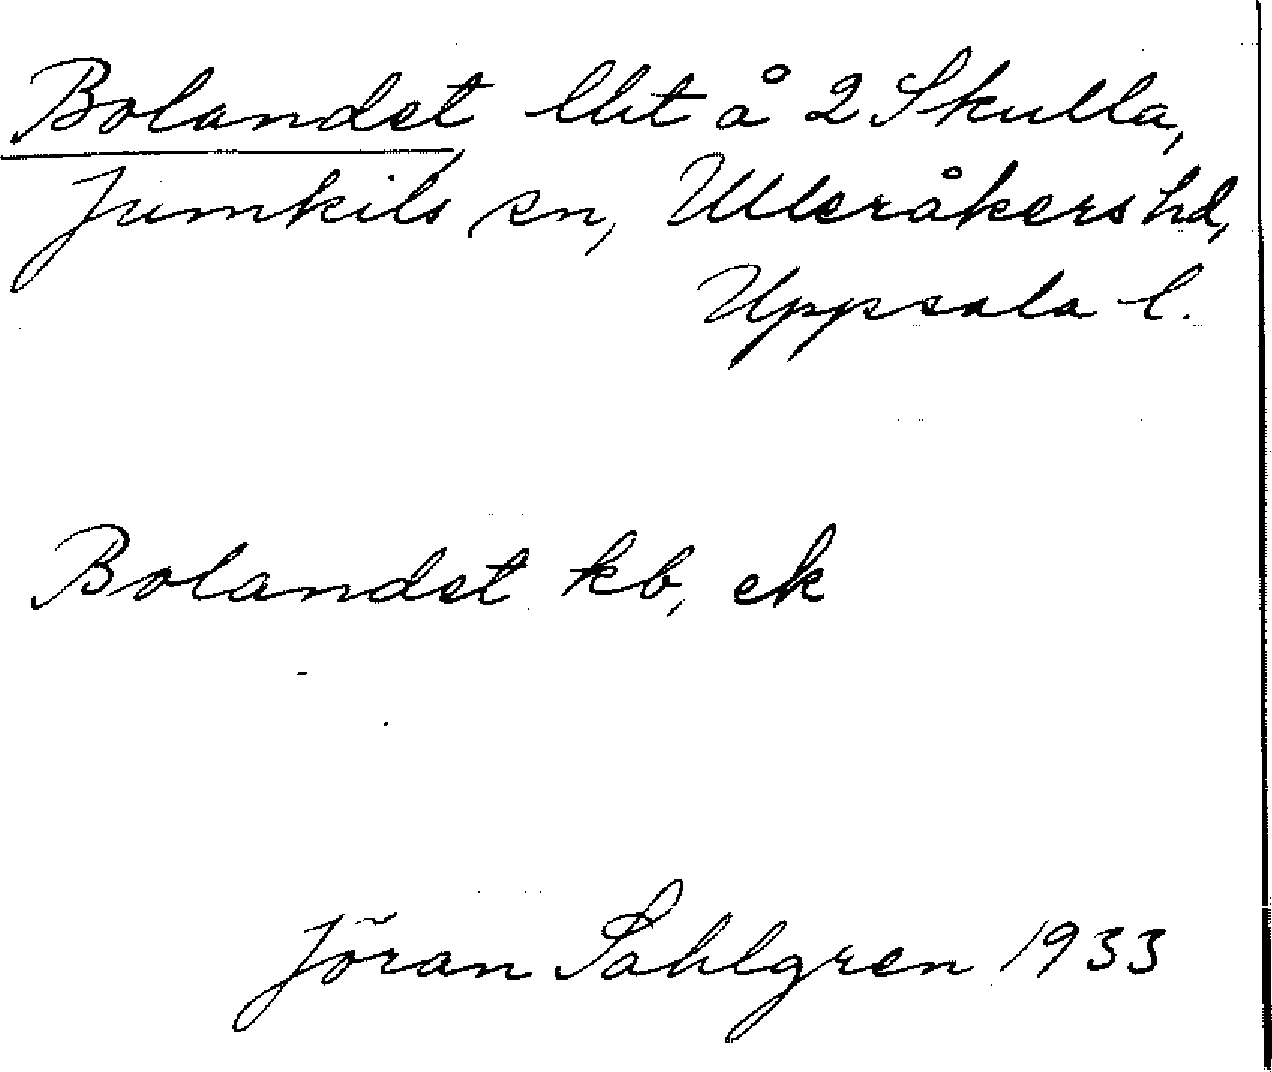 Bolandet llbt å 2 Skulla,
Jumkils sn, Ulleråkers hd,
Uppsala l.
Bolandet kb, ek
Jöran Sahlgren 1933